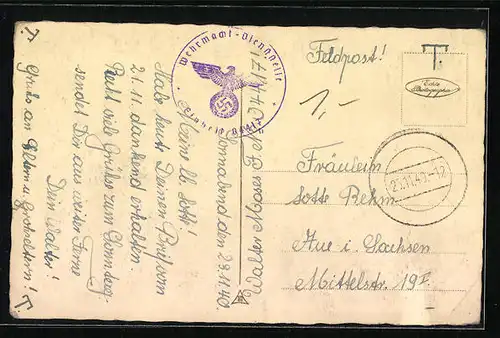 Feldpost!
T.
Echte
Photographie
1,-
Fräulein
Lotte Rehm
Aue i. Sachsen
Mittelstr. 19 I
23.11.40.-12
Walter Moses Feldp.
Sonnabend den 23.11.40.
Meine lb. Lotte!
Habe heut Deinen Brief vom
21.11. dankend erhalten.
Recht viele Grüße zum Sonntag
sendet Dir aus weiter Ferne
Dein Walter!
Gruß an Eltern u. Großeltern!